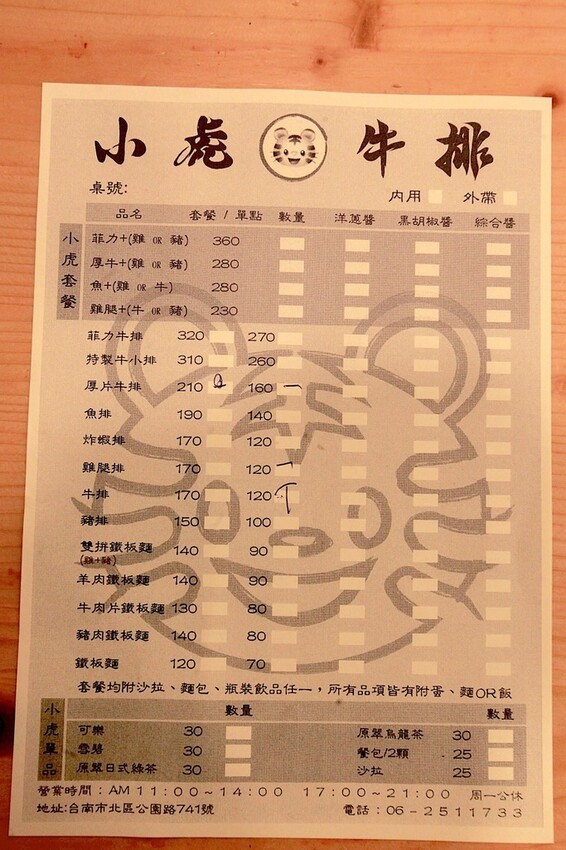 小虎牛排
桌號:
內用 外帶
品名 套餐 / 單點 數量 洋蔥醬 黑胡椒醬 綜合醬
小虎套餐
菲力+(雞 OR 豬) 360
厚牛+(雞 OR 豬) 280
魚+(雞 OR 牛) 280
雞腿+(牛 OR 豬) 230
菲力牛排 320 270
特製牛小排 310 260
厚片牛排 210 160 一
魚排 190 140
炸蝦排 170 120
雞腿排 170 120 一
牛排 170 120 T
豬排 150 100
雙拼鐵板麵 140 90
(雞+豬)
羊肉鐵板麵 140 90
牛肉片鐵板麵 130 80
豬肉鐵板麵 140 80
鐵板麵 120 70
套餐均附沙拉、麵包、瓶裝飲品任一，所有品項皆有附蛋、麵OR飯
小虎單品
數量 數量
可樂 30 原萃烏龍茶 30
雪碧 30 餐包/2顆 25
原萃日式綠茶 30 沙拉 25
營業時間：AM 11:00~14:00 17:00~21:00 周一公休
地址:台南市北區公園路741號 電話：06-2511733